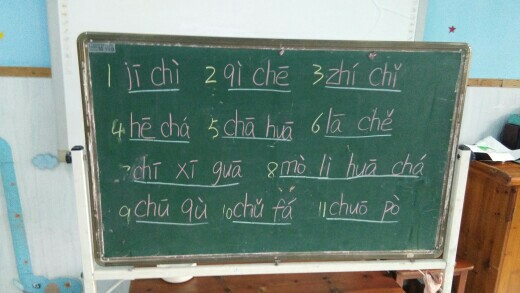 1 jī chì 2 qì chē 3 zhí chǐ
4 hē chá 5 chā huā 6 lā chě
7 chī xī guā 8 mò li huā chá
9 chū qù 10 chǔ fá 11 chuō pò